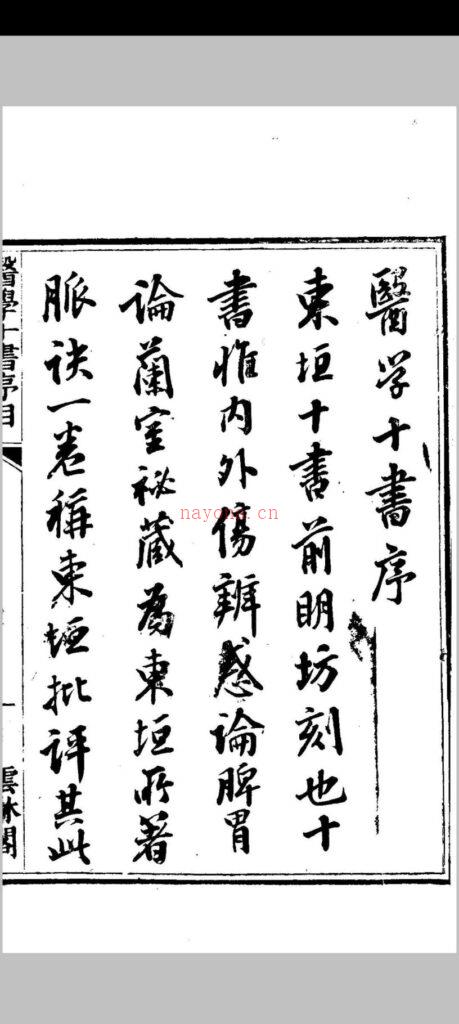 醫学十書序
東垣十書前明坊刻也十
書惟内外傷辨惑論脾胃
論蘭室祕藏為東垣所著
脈诀一卷稱東垣批評其此
醫學十書序目
一
雲林閣
nayona.cn